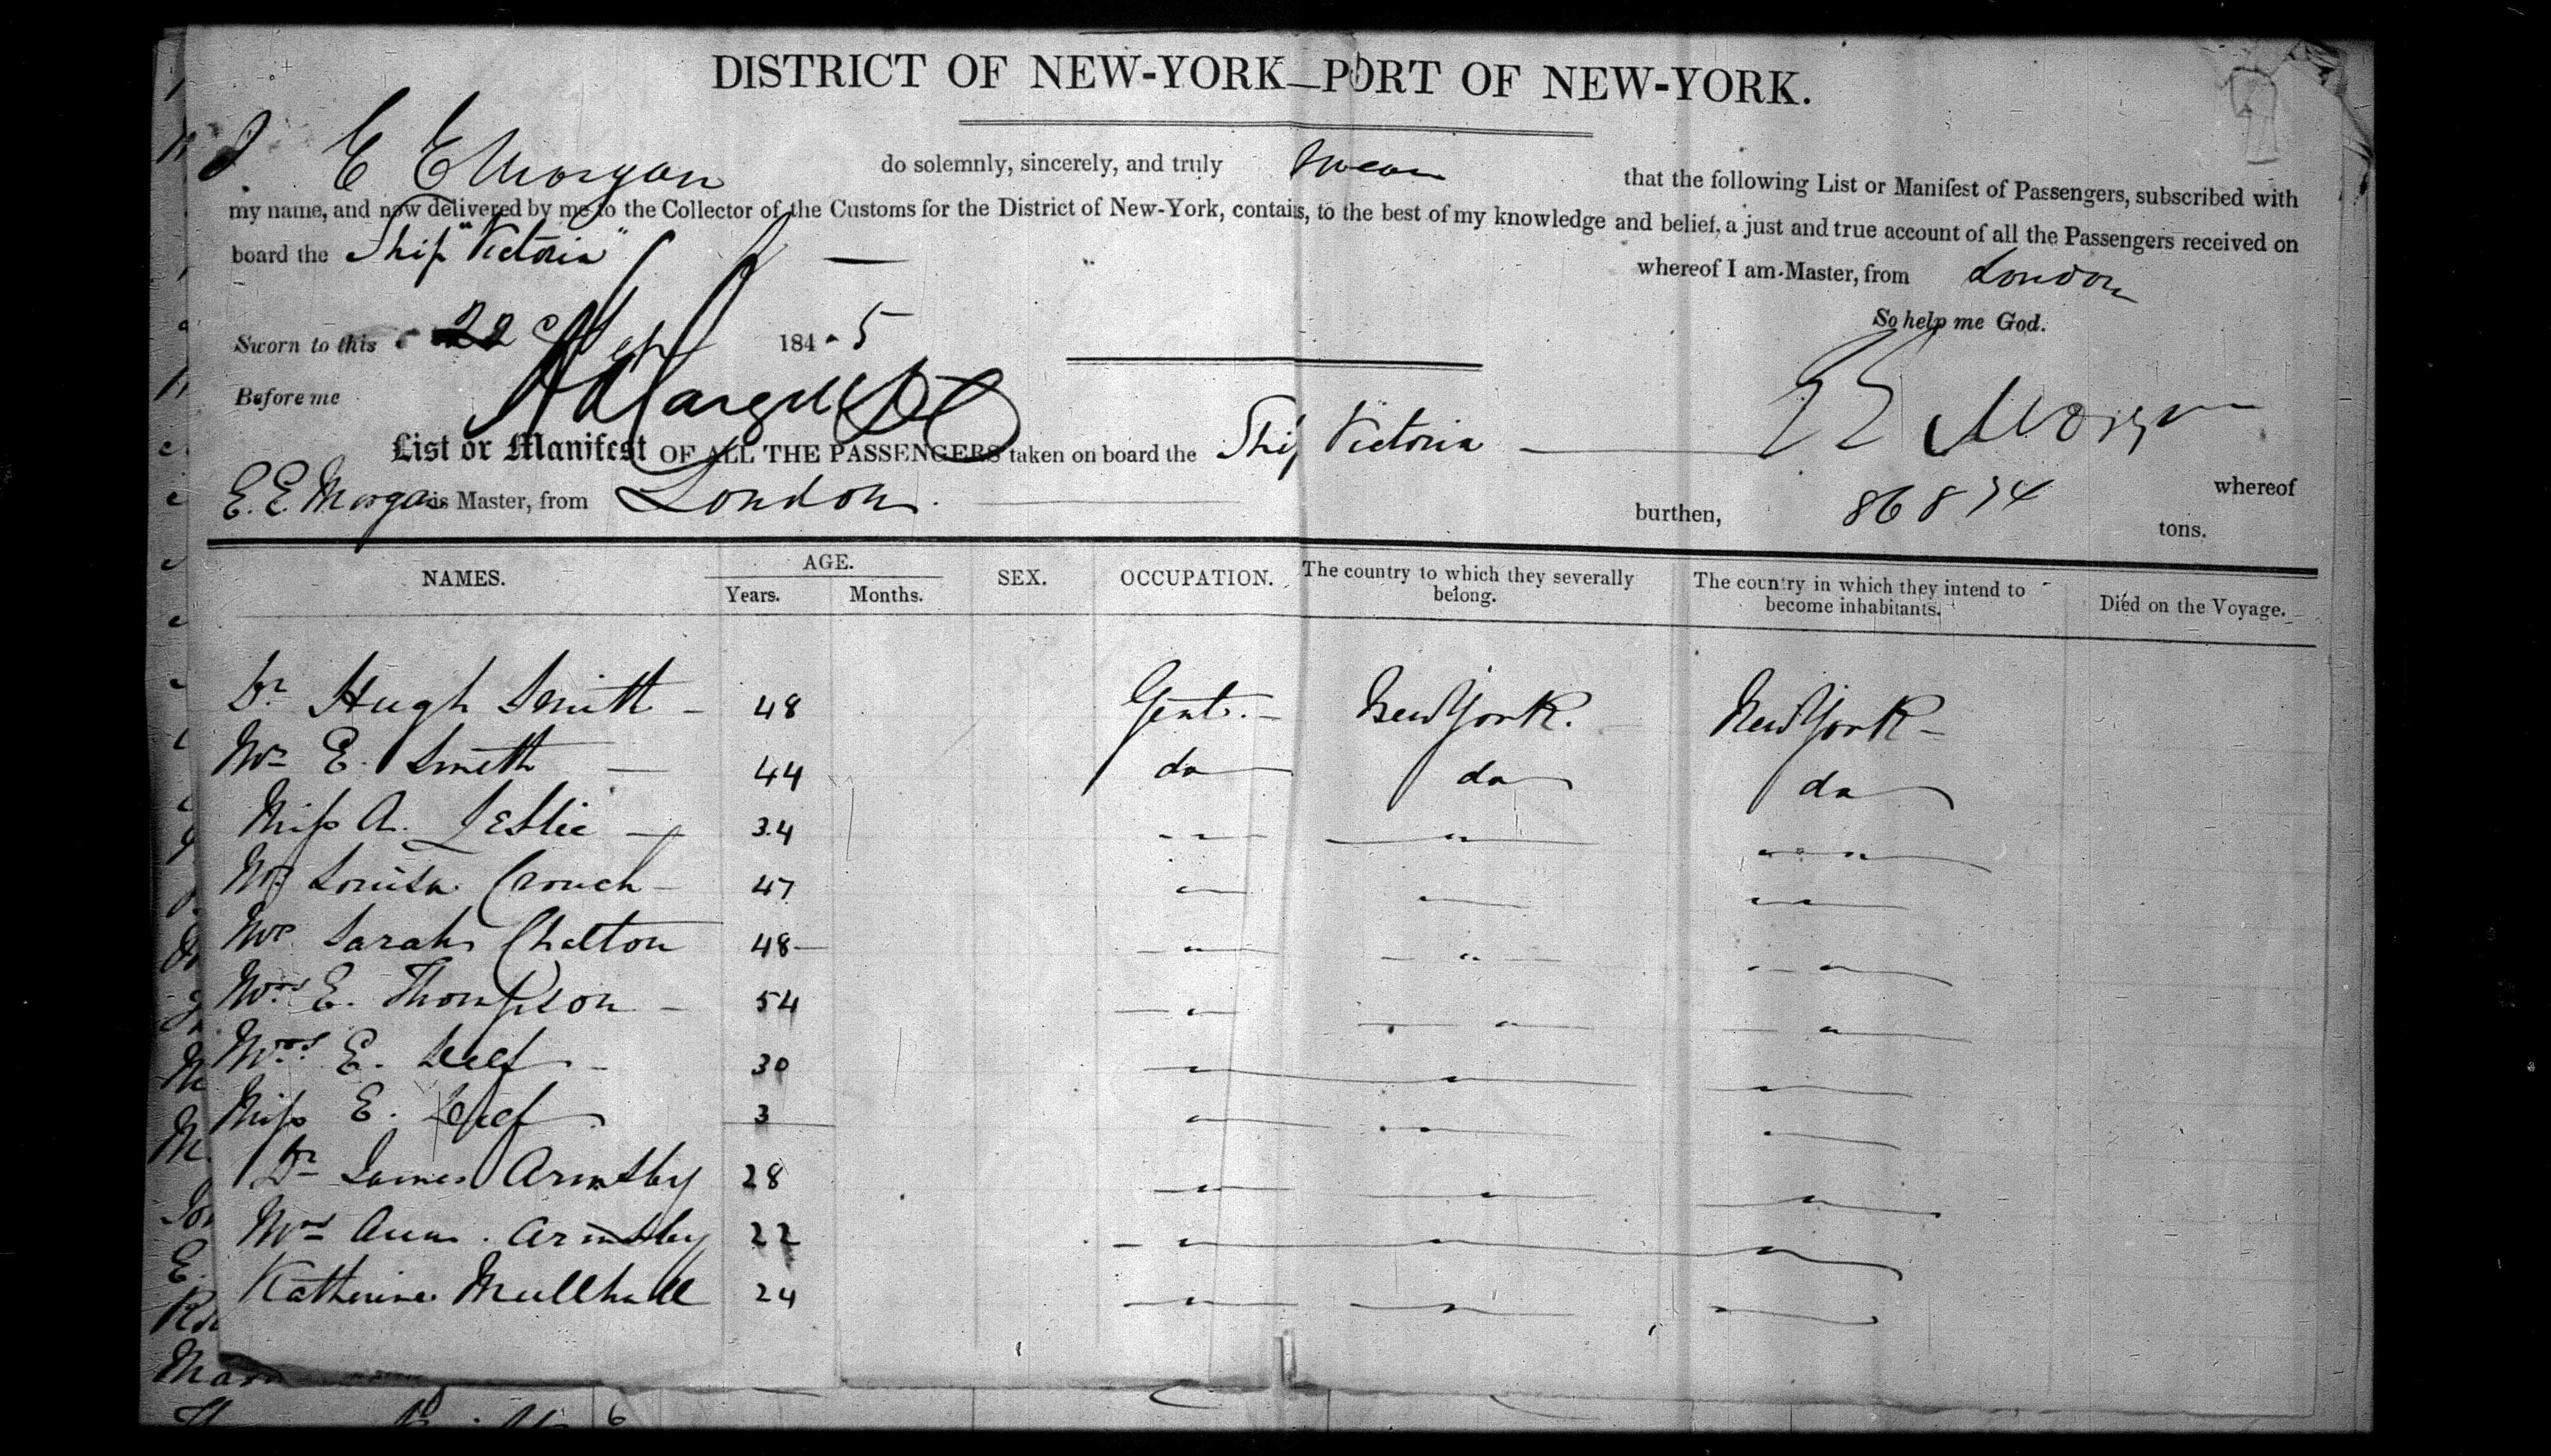 DISTRICT OF NEW-YORK—PORT OF NEW-YORK.
I E E Morgan do solemnly, sincerely, and truly swear that the following List or Manifest of Passengers, subscribed with
my name, and now delivered by me to the Collector of the Customs for the District of New-York, contains, to the best of my knowledge and belief, a just and true account of all the Passengers received on
board the Ship "Victoria" whereof I am Master, from London
So help me God.
Sworn to this 22 Sep 184 5
Before me
E E Morgan
List or Manifest OF ALL THE PASSENGERS taken on board the Ship Victoria whereof
E. E. Morgan is Master, from London. burthen, 868 74 tons.
NAMES. AGE. SEX. OCCUPATION. The country to which they severally belong. The country in which they intend to become inhabitants. Died on the Voyage.
Years. Months.
Dr Hugh Smith 48 Gent. New York. New York
Mrs E. Smith 44 do do do
Miss A. Leslie 34 " " "
Mrs Louisa Crouch 47 " " "
Mrs Sarah Chalton 48 " " "
Mrs E. Thompson 54 " " "
Mrs E. 30 " " "
Miss E. 3 " " "
Dr James Armsby 28 " " "
Mrs Ann Armsby 22 " " "
Katherine Mullhall 24 " " "